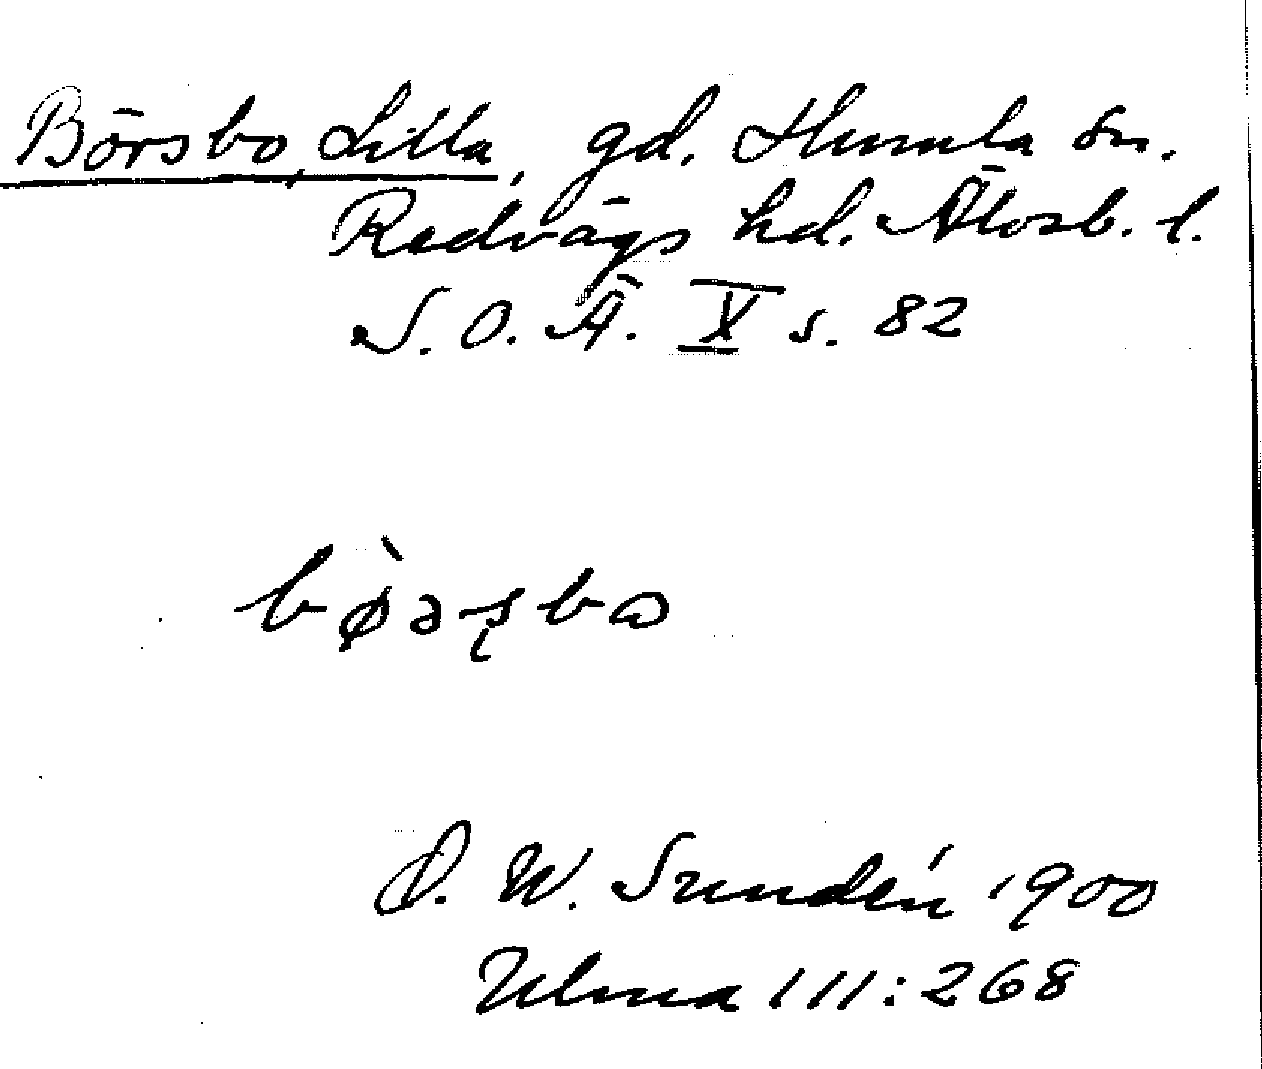 Börsbo, Lilla, gd. Humla sn.
Redvägs hd. Älvsb. l.
S. O. Ä. X s. 82
bø̀əʂbɷ
D. W. Sundén 1900
Ulma 111:268